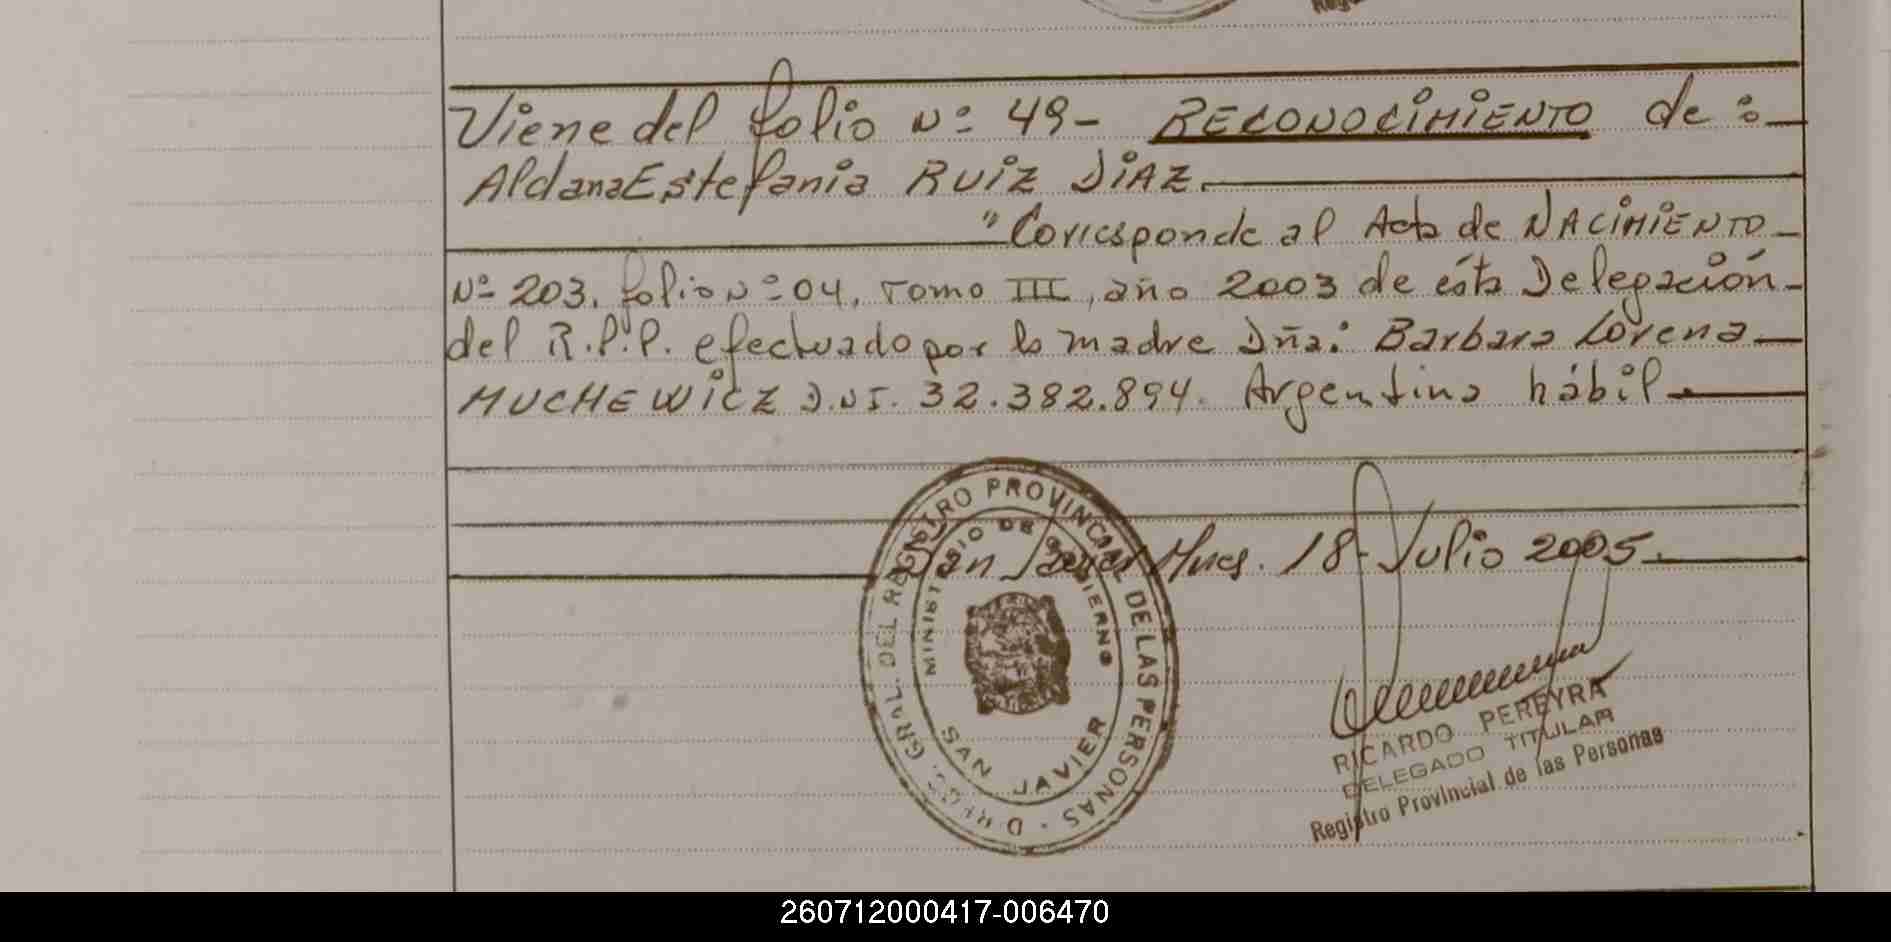 Viene del folio Nº 49- RECONOCIMIENTO de:
Aldana Estefania RUIZ DIAZ.
"Corresponde al Acta de NACIMIENTO
Nº 203. folio Nº 04, Tomo III, año 2003 de ésta Delegación
del R.P.P. efectuado por la madre Dña: Barbara Lorena
MUCHEWICZ D.N.I. 32.382.894. Argentina hábil
San Javier Mnes. 18- Julio 2005.
DIREC. GRAL. DEL REGISTRO PROVINCIAL DE LAS PERSONAS
MINISTERIO DE GOBIERNO
SAN JAVIER
RICARDO PEREYRA
DELEGADO TITULAR
Registro Provincial de las Personas
260712000417-006470